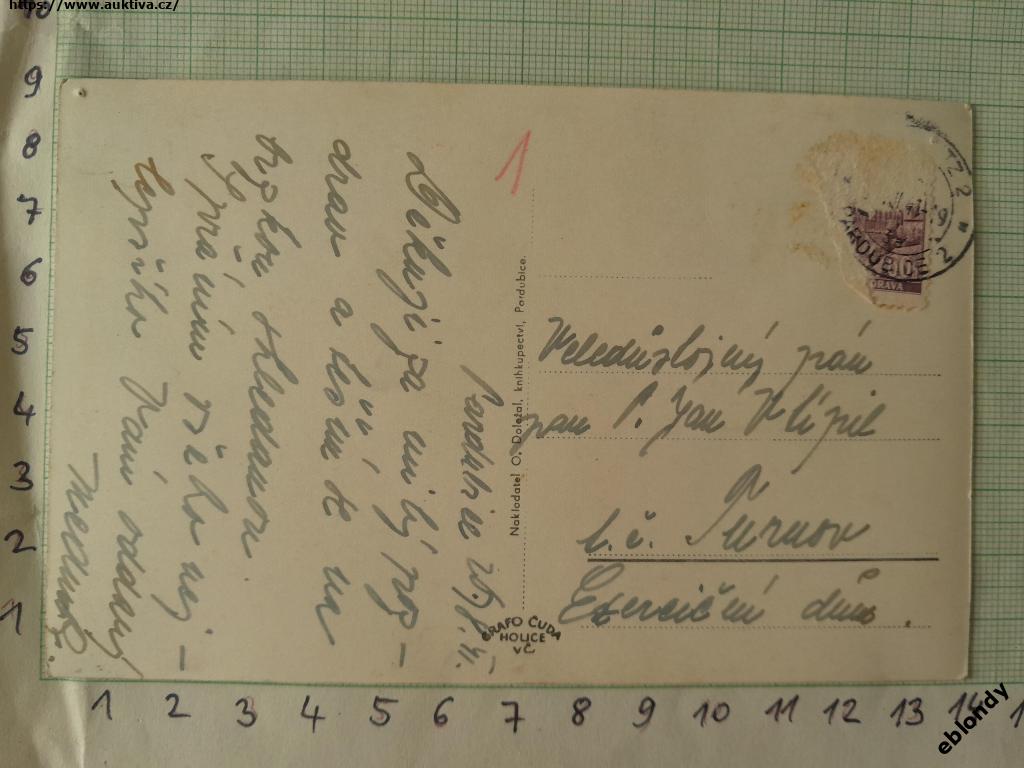 https://www.auktiva.cz/
10
9
8
7
6
5
4
3
2
1
Pardubice
Děkuji za milý poz-
drav a těším se na
brzkou shledanou.
Vám všeho nej-
lepšího Vám oddaný
1
Nakladatel O. Doležal, knihkupectví, Pardubice.
GRAFO ČUDA
HOLICE
VČ
PARDUBICE 2
ORAVA
Veledůstojný pán
pan P. Jan Klípil
t. č. Turnov
Exerciční dům.
1 2 3 4 5 6 7 8 9 10 11 12 13 14
eblondy